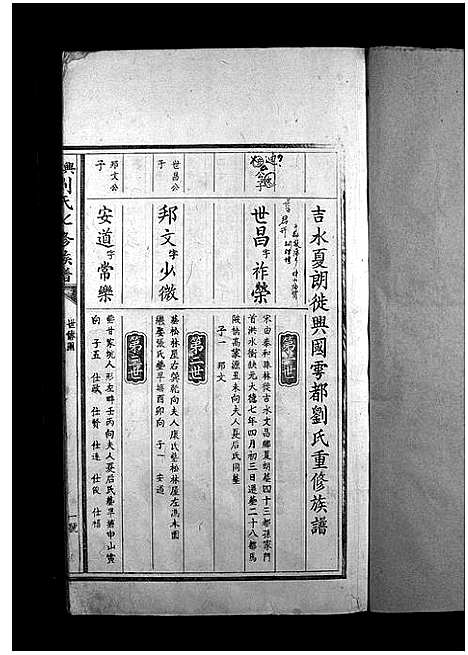 吉水夏朗徙興國雩都劉氏重修族譜
世昌字祚榮
第一世
宋由泰和珠林徙吉水文昌鄉夏朗基四十三都張家門
首洪水衝缺元大德七年四月初三日遷葬二十八都馬
陂橋高蒙源丑未向夫人晏后氏同塋
子一 邦文
世昌公
子
邦文字少微
第二世
葬松林屋右巽乾向夫人康氏葬松林屋左馮木園
繼娶張氏葬早塘酉卯向 子一 安道
邦文公
子
安道字常樂
第三世
葬甘家坑人形左畔壬丙向夫人晏后氏葬早塘申山寅
向 子五 仕敬 仕賢 仕達 仕俊 仕惜
興 劉氏七修族譜
世系圖
一號